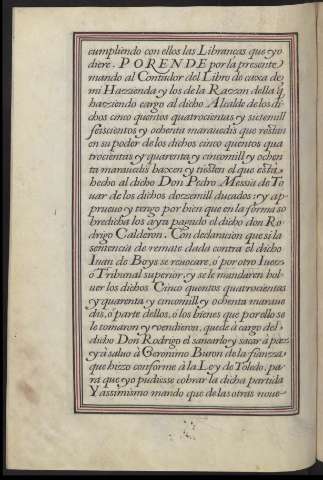 cumpliendo con ellos las Librancas que yo
diere. PORENDE por la presente
mando al Contador del Libro de caxa de
mi Hazzienda y los de la Razzon della q̃
hazziendo cargo al dicho Alcalde de los di
chos cinco quentos quatrocientas y sietemill
seiscientos y ochenta marauedis que restan
en su poder de los dichos cinco quentos qua
trocientas y quarenta y cincomill y ochen
ta marauedis baxen y tiesten el que esta
hecho al dicho Don Pedro Messia de To
uar de los dichos dozzemill ducados; y ap
prueuo y tengo por bien que en la forma so
bredicha los aya pagado el dicho don Ro
drigo Calderon. Con declaracion que si la
sentencia de remate dada contra el dicho
Iuan de Boys se reuocare, ò por otro Iuez
ò Tribunal superior, y se le mandaren bol
uer los dichos Cinco quentos quatrocientos
y quarenta y cincomill y ochenta maraue
dis, ò parte dellos, ò los bienes que por ello se
le tomaron y vendieron, quede à cargo del
dicho Don Rodrigo el sanearlo y sacar à paz
y à saluo à Geronimo Buron de la fianzza
que hizo conforme à la Ley de Toledo, pa
ra que yo pudiesse cobrar la dicha partida
Y assimismo mando que de las otras noue